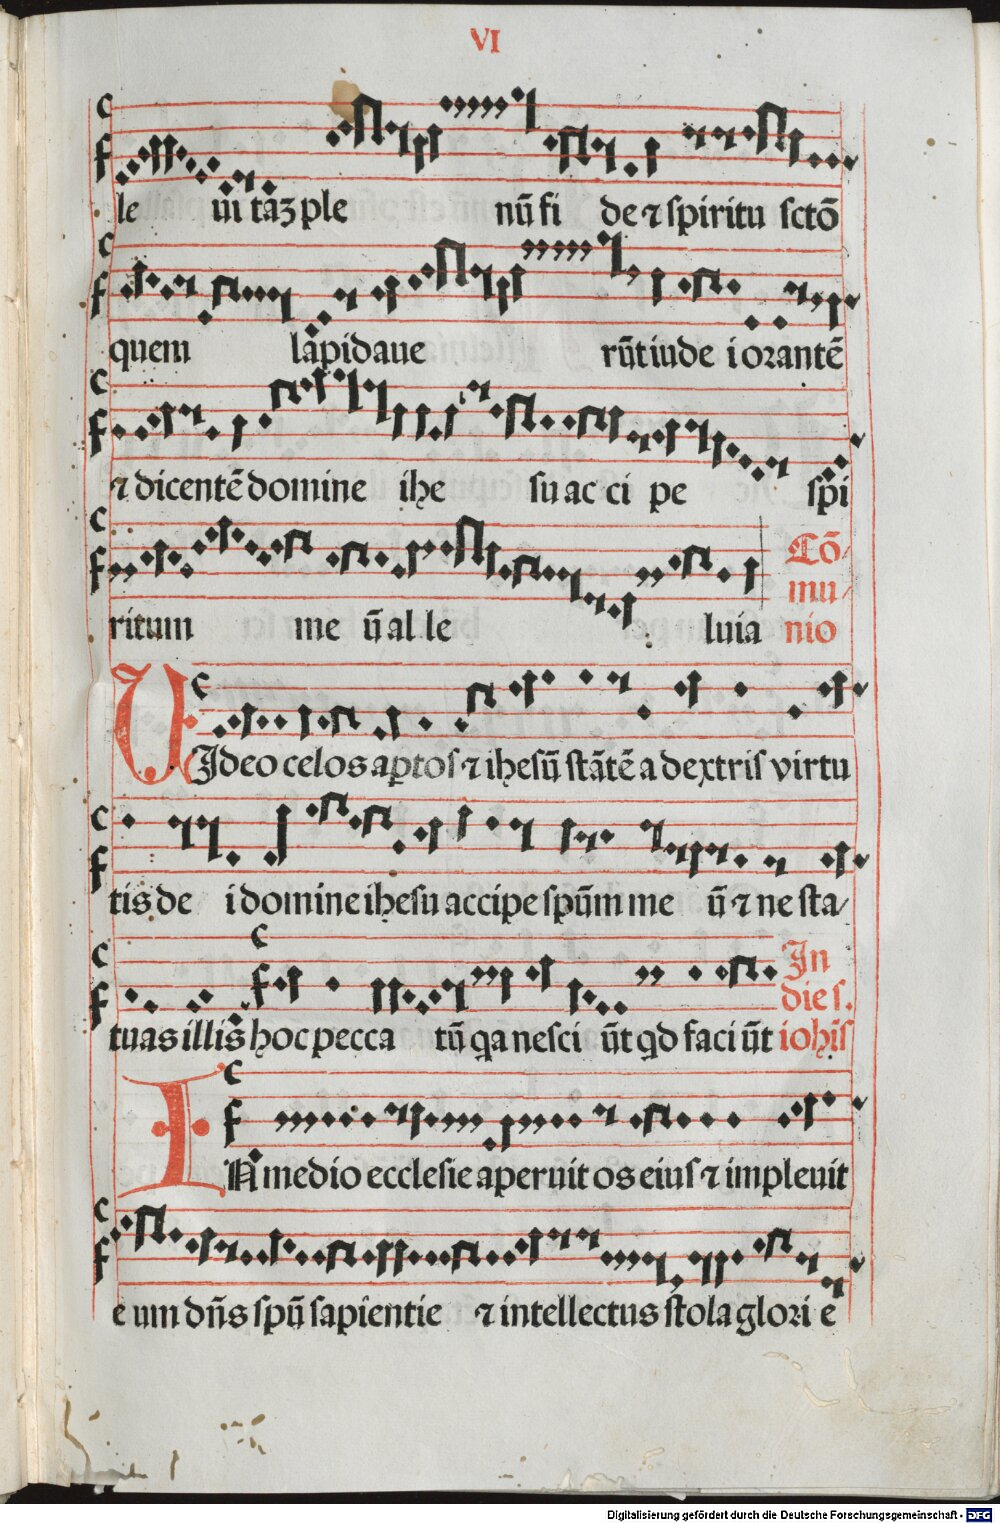 VI
le ui taꝫ ple nū fi de ⁊ spiritu sctō
quem lapidaue rūt iude i orantē
⁊ dicentē domine ihe su ac ci pe spi
ritum me ū al le luia
Cō/
mu/
nio
VIdeo celos aptos ⁊ ihesū stātē a dextris virtu
tis de i domine ihesu accipe spūm me ū ⁊ ne sta/
tuas illis hoc pecca tū qa nesci ūt qd faci ūt
In
die s.
iohīs
IN medio ecclesie aperuit os eius ⁊ impleuit
e um dn̄s spū sapientie ⁊ intellectus stola glori e
Digitalisierung gefördert durch die Deutsche Forschungsgemeinschaft - DFG